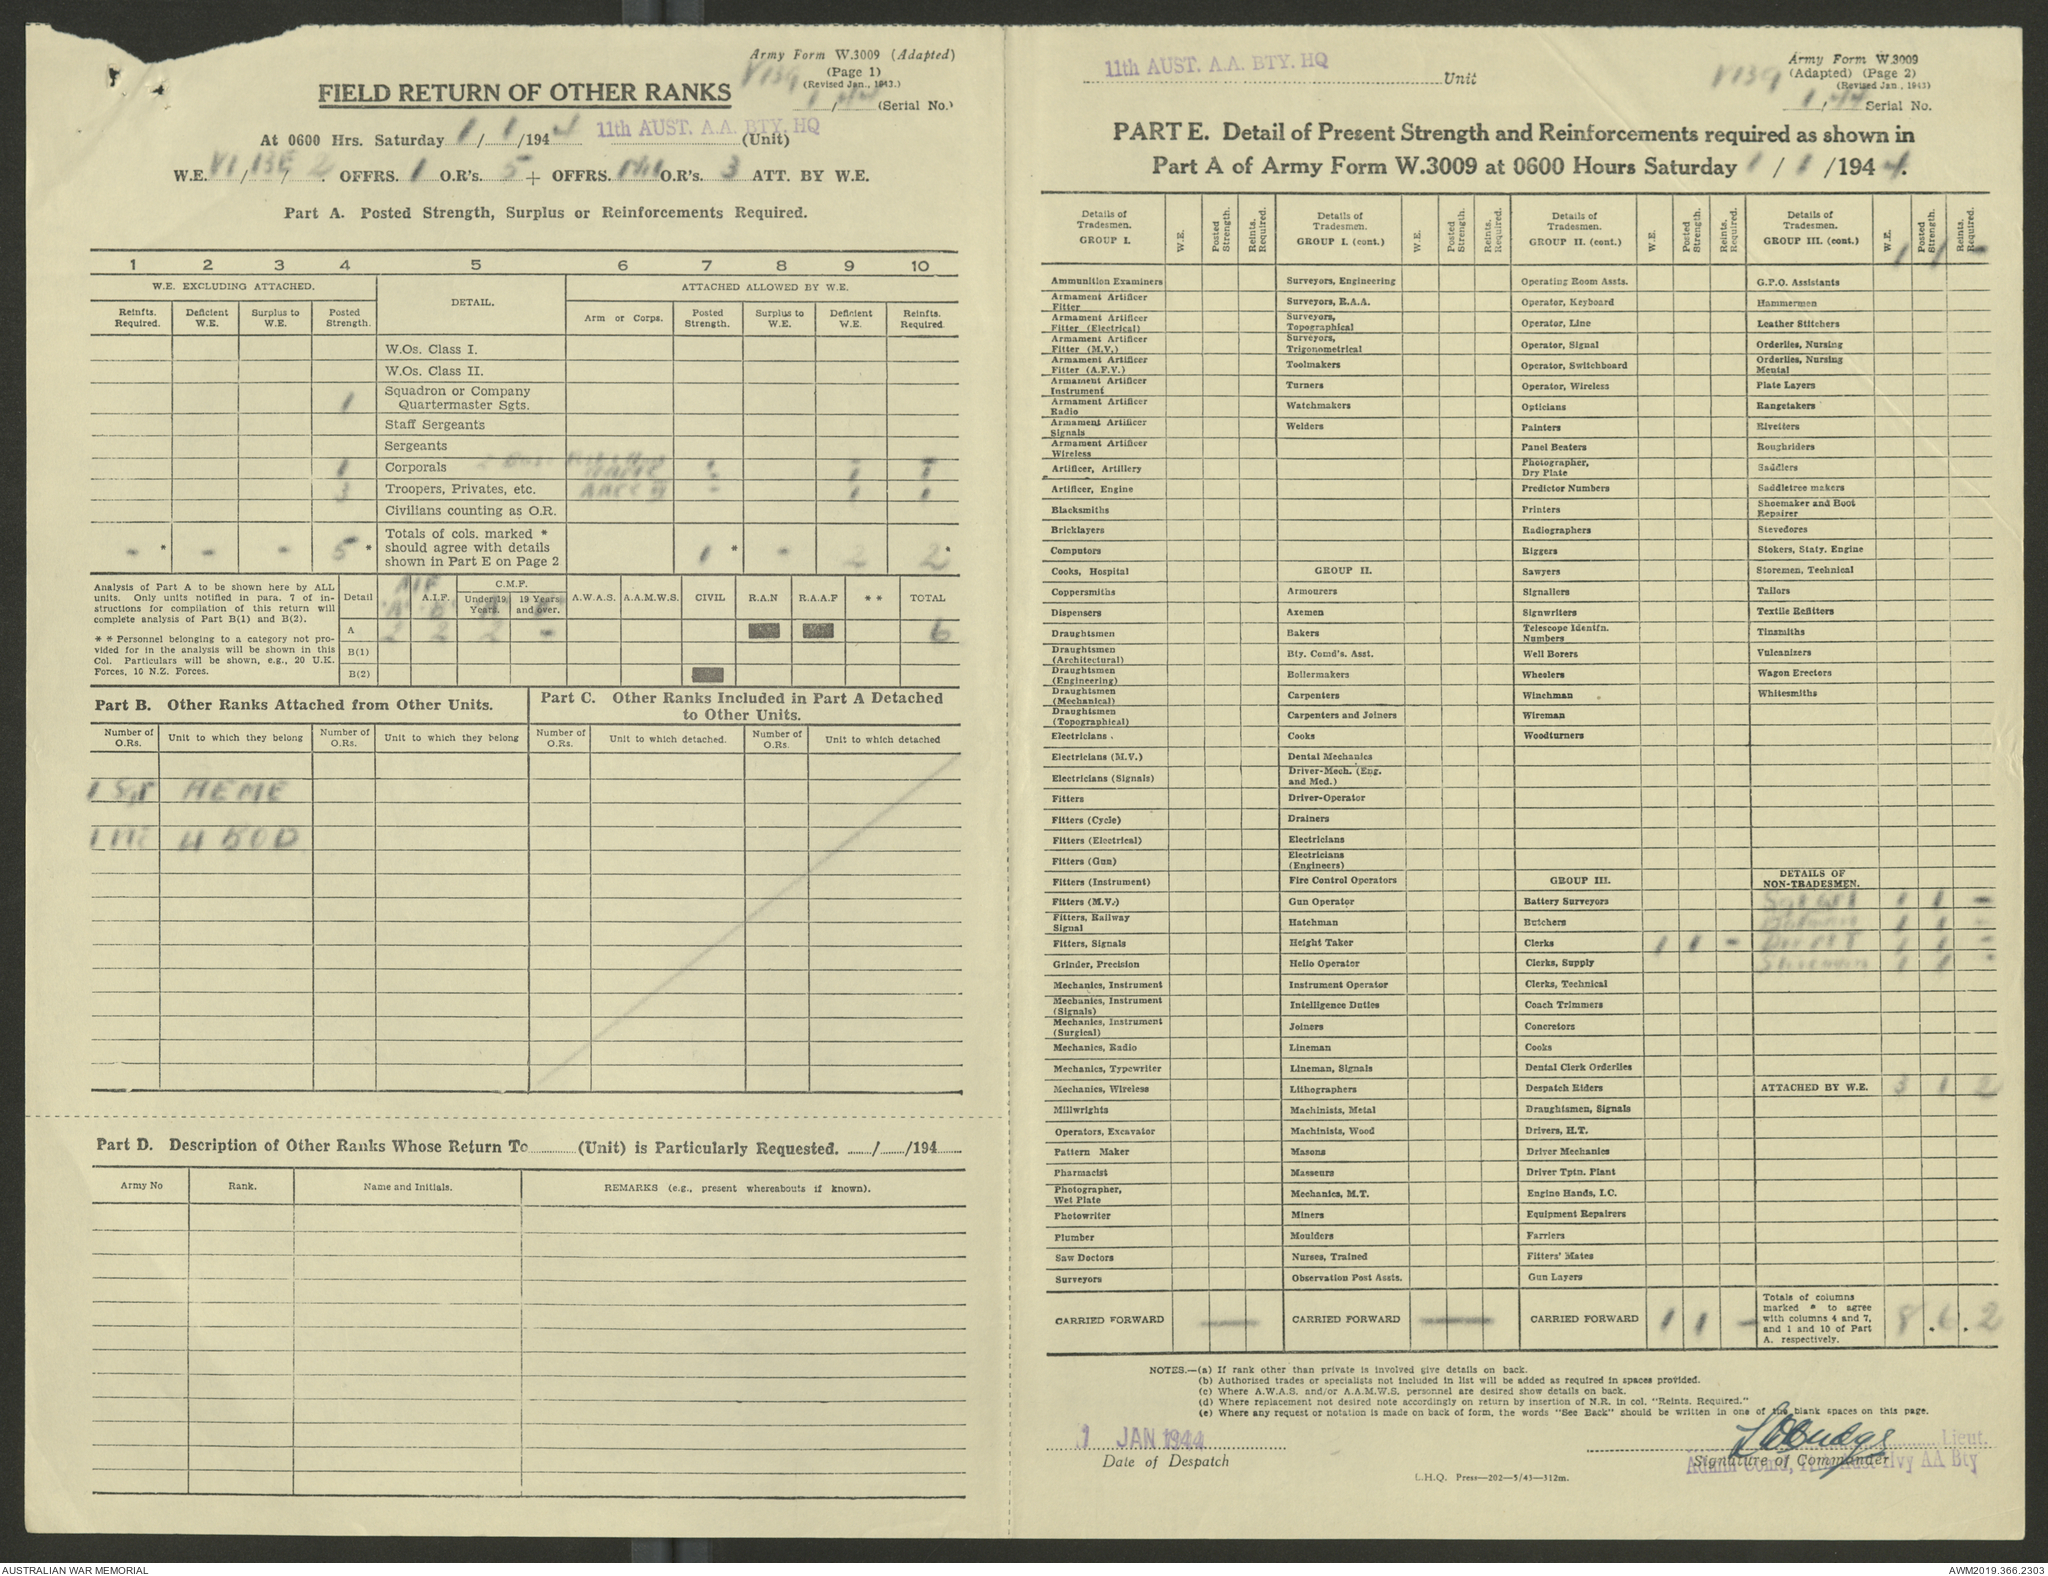 Army Form W.3009 (Adapted)
(Page 1)
(Revised Jan., 1943.)
V139
1/44 (Serial No.)
FIELD RETURN OF OTHER RANKS
At 0600 Hrs. Saturday 1/1/1944 11th AUST. A.A. BTY. HQ (Unit)
W.E. VI/13E/2. OFFRS. 1 O.R's. 5 + OFFRS. Nil O.R's. 3 ATT. BY W.E.
Part A. Posted Strength, Surplus or Reinforcements Required.
1 2 3 4 5 6 7 8 9 10
W.E. EXCLUDING ATTACHED. DETAIL. ATTACHED ALLOWED BY W.E.
Reinfts. Required. Deficient W.E. Surplus to W.E. Posted Strength. Arm or Corps. Posted Strength. Surplus to W.E. Deficient W.E. Reinfts. Required.
W.Os. Class I.
W.Os. Class II.
1 Squadron or Company Quartermaster Sgts.
Staff Sergeants
Sergeants
1 Corporals
3 Troopers, Privates, etc. 1 1
Civilians counting as O.R.
- * - - 5 * Totals of cols. marked * should agree with details shown in Part E on Page 2 1 * - 2 2 *
Analysis of Part A to be shown here by ALL units. Only units notified in para. 7 of instructions for compilation of this return will complete analysis of Part B(1) and B(2).
* * Personnel belonging to a category not provided for in the analysis will be shown in this Col. Particulars will be shown, e.g., 20 U.K. Forces, 10 N.Z. Forces.
Detail AIF A.I.F. C.M.F. Under 19 Years. 19 Years and over. A.W.A.S. A.A.M.W.S. CIVIL R.A.N R.A.A.F * * TOTAL
A 2 2 2 - 6
B(1)
B(2)
Part B. Other Ranks Attached from Other Units.
Number of O.Rs. Unit to which they belong Number of O.Rs. Unit to which they belong
1 Sgt AEME
1 4 BOD
Part C. Other Ranks Included in Part A Detached to Other Units.
Number of O.Rs. Unit to which detached. Number of O.Rs. Unit to which detached
Part D. Description of Other Ranks Whose Return To ......... (Unit) is Particularly Requested. ....../....../194......
Army No Rank. Name and Initials. REMARKS (e.g., present whereabouts if known).
11th AUST. A.A. BTY. HQ Unit
Army Form W.3009
(Adapted) (Page 2)
(Revised Jan., 1943)
V139
1/44 Serial No.
PART E. Detail of Present Strength and Reinforcements required as shown in
Part A of Army Form W.3009 at 0600 Hours Saturday 1/1/1944.
Details of Tradesmen. GROUP I. W.E. Posted Strength. Reints. Required.
Ammunition Examiners
Armament Artificer Fitter
Armament Artificer Fitter (Electrical)
Armament Artificer Fitter (M.V.)
Armament Artificer Fitter (A.F.V.)
Armament Artificer Instrument
Armament Artificer Radio
Armament Artificer Signals
Armament Artificer Wireless
Artificer, Artillery
Artificer, Engine
Blacksmiths
Bricklayers
Computors
Cooks, Hospital
Coppersmiths
Dispensers
Draughtsmen
Draughtsmen (Architectural)
Draughtsmen (Engineering)
Draughtsmen (Mechanical)
Draughtsmen (Topographical)
Electricians
Electricians (M.V.)
Electricians (Signals)
Fitters
Fitters (Cycle)
Fitters (Electrical)
Fitters (Gun)
Fitters (Instrument)
Fitters (M.V.)
Fitters, Railway Signal
Fitters, Signals
Grinder, Precision
Mechanics, Instrument
Mechanics, Instrument (Signals)
Mechanics, Instrument (Surgical)
Mechanics, Radio
Mechanics, Typewriter
Mechanics, Wireless
Millwrights
Operators, Excavator
Pattern Maker
Pharmacist
Photographer, Wet Plate
Photowriter
Plumber
Saw Doctors
Surveyors
CARRIED FORWARD —
Details of Tradesmen. GROUP I. (cont.) W.E. Posted Strength. Reints. Required.
Surveyors, Engineering
Surveyors, R.A.A.
Surveyors, Topographical
Surveyors, Trigonometrical
Toolmakers
Turners
Watchmakers
Welders
GROUP II.
Armourers
Axemen
Bakers
Bty. Comd's. Asst.
Boilermakers
Carpenters
Carpenters and Joiners
Cooks
Dental Mechanics
Driver-Mech. (Eng. and Med.)
Driver-Operator
Drainers
Electricians
Electricians (Engineers)
Fire Control Operators
Gun Operator
Hatchman
Height Taker
Helio Operator
Instrument Operator
Intelligence Duties
Joiners
Lineman
Lineman, Signals
Lithographers
Machinists, Metal
Machinists, Wood
Masons
Masseurs
Mechanics, M.T.
Miners
Moulders
Nurses, Trained
Observation Post Assts.
CARRIED FORWARD —
Details of Tradesmen. GROUP II. (cont.) W.E. Posted Strength. Reints. Required.
Operating Room Assts.
Operator, Keyboard
Operator, Line
Operator, Signal
Operator, Switchboard
Operator, Wireless
Opticians
Painters
Panel Beaters
Photographer, Dry Plate
Predictor Numbers
Printers
Radiographers
Riggers
Sawyers
Signallers
Signwriters
Telescope Identfn. Numbers
Well Borers
Wheelers
Winchman
Wireman
Woodturners
GROUP III.
Battery Surveyors
Butchers
Clerks 1 1 -
Clerks, Supply
Clerks, Technical
Coach Trimmers
Concretors
Cooks
Dental Clerk Orderlies
Despatch Riders
Draughtsmen, Signals
Drivers, H.T.
Driver Mechanics
Driver Tptn. Plant
Engine Hands, I.C.
Equipment Repairers
Farriers
Fitters' Mates
Gun Layers
CARRIED FORWARD 1 1 -
Details of Tradesmen. GROUP III. (cont.) W.E. Posted Strength. Reints. Required.
1 1 -
G.P.O. Assistants
Hammermen
Leather Stitchers
Orderlies, Nursing
Orderlies, Nursing Mental
Plate Layers
Rangetakers
Rivetters
Roughriders
Saddlers
Saddletree makers
Shoemaker and Boot Repairer
Stevedores
Stokers, Staty. Engine
Storemen, Technical
Tailors
Textile Refitters
Tinsmiths
Vulcanizers
Wagon Erectors
Whitesmiths
DETAILS OF NON-TRADESMEN.
1 1 -
Batman 1 1 -
Dvr MT 1 1 -
Storeman 1 1 -
ATTACHED BY W.E. 3 1 2
Totals of columns marked * to agree with columns 4 and 7, and 1 and 10 of Part A. respectively. 8 . 6 . 2
NOTES.—(a) If rank other than private is involved give details on back.
(b) Authorised trades or specialists not included in list will be added as required in spaces provided.
(c) Where A.W.A.S. and/or A.A.M.W.S. personnel are desired show details on back.
(d) Where replacement not desired note accordingly on return by insertion of N.R. in col. "Reints. Required."
(e) Where any request or notation is made on back of form, the words "See Back" should be written in one of the blank spaces on this page.
1 JAN 1944
Date of Despatch
Lieut.
Signature of Commander
Admin Comd, 11th Aust Hvy AA Bty
L.H.Q. Press—202—5/43—312m.
AUSTRALIAN WAR MEMORIAL
AWM2019.366.2303